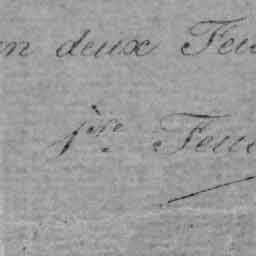 en deux Feu
p.re Feu